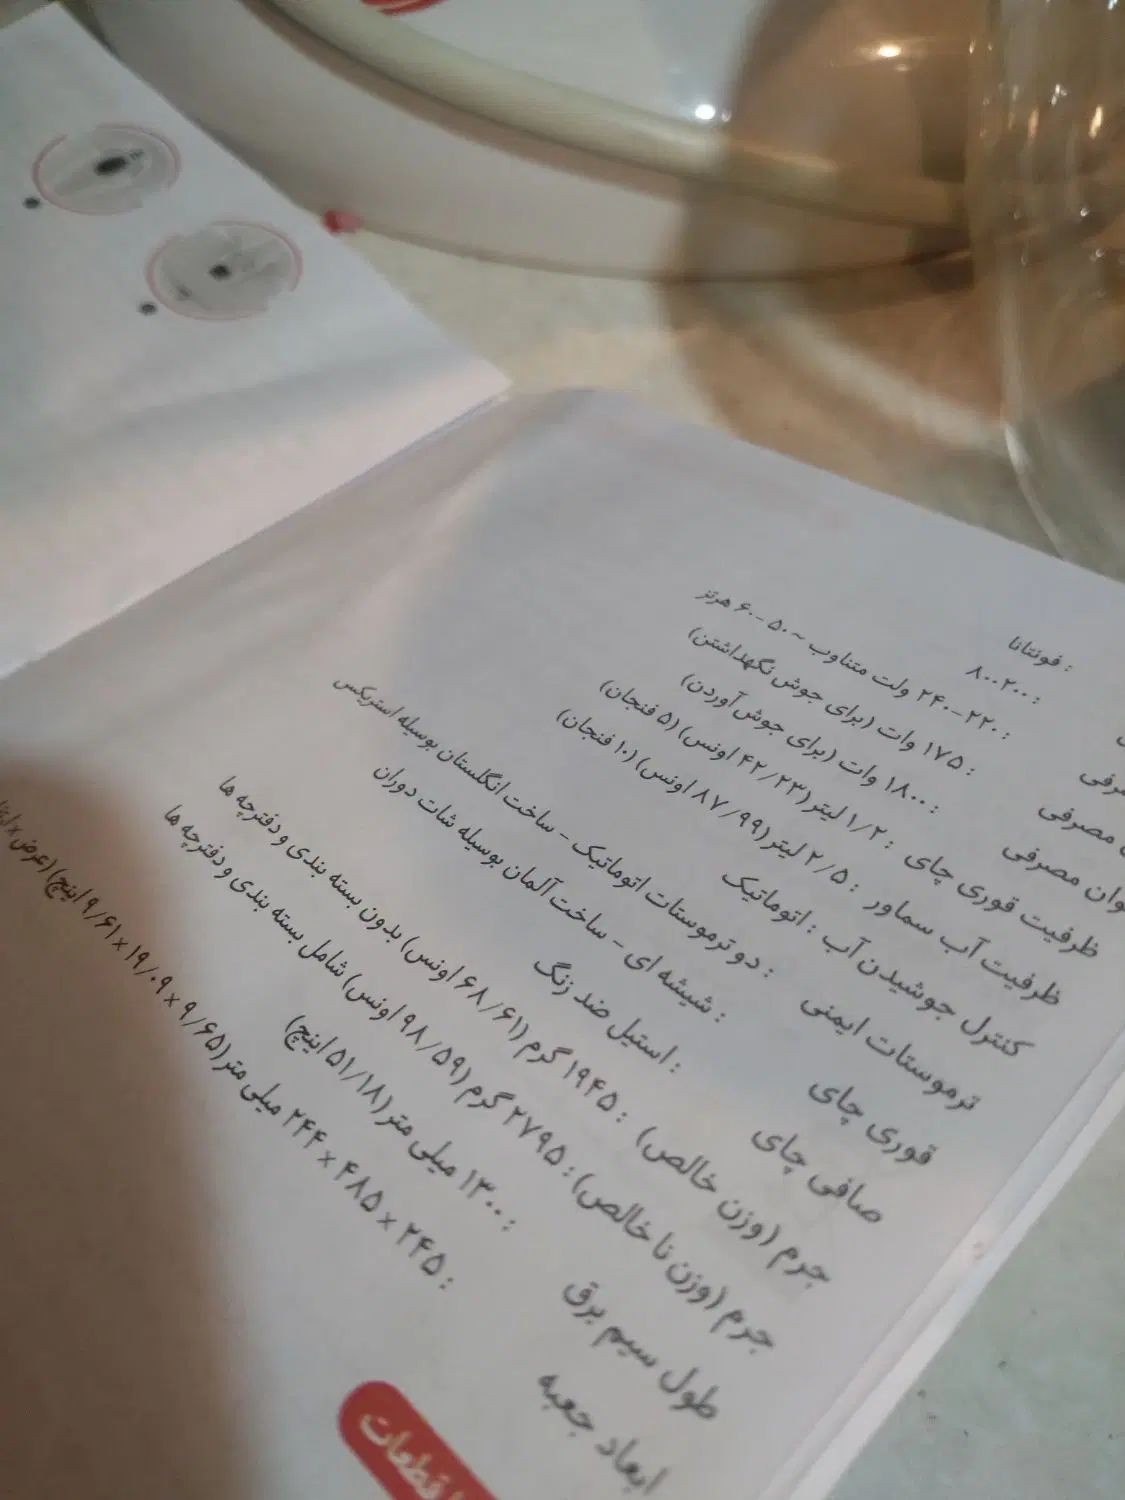 : فونتانا
: ۸۰۰۲۰۰
: ۲۲۰-۲۴۰ ولت متناوب ~ ۵۰-۶۰ هرتز
: ۱۷۵ وات (برای جوش نگهداشتن)
مصرفی : ۱۸۰۰ وات (برای جوش آوردن)
مصرفی
ظرفیت قوری چای : ۱/۲ لیتر (۴۲/۲۳ اونس) (۵ فنجان)
ظرفیت آب سماور : ۲/۵ لیتر (۸۷/۹۹ اونس) (۱۰ فنجان)
کنترل جوشیدن آب : اتوماتیک
ترموستات ایمنی : دو ترموستات اتوماتیک - ساخت انگلستان بوسیله استریکس
قوری چای : شیشه ای - ساخت آلمان بوسیله شات دوران
صافی چای : استیل ضد زنگ
جرم (وزن خالص) : ۱۹۴۵ گرم (۶۸/۶۱ اونس) بدون بسته بندی و دفترچه ها
جرم (وزن نا خالص) : ۲۷۹۵ گرم (۹۸/۵۹ اونس) شامل بسته بندی و دفترچه ها
طول سیم برق : ۱۳۰۰ میلی متر (۵۱/۱۸ اینچ)
ابعاد جعبه : ۲۴۵ × ۴۸۵ × ۲۴۴ میلی متر (۹/۶۵ × ۱۹/۰۹ × ۹/۶۱ اینچ) (عرض ×
قطعات